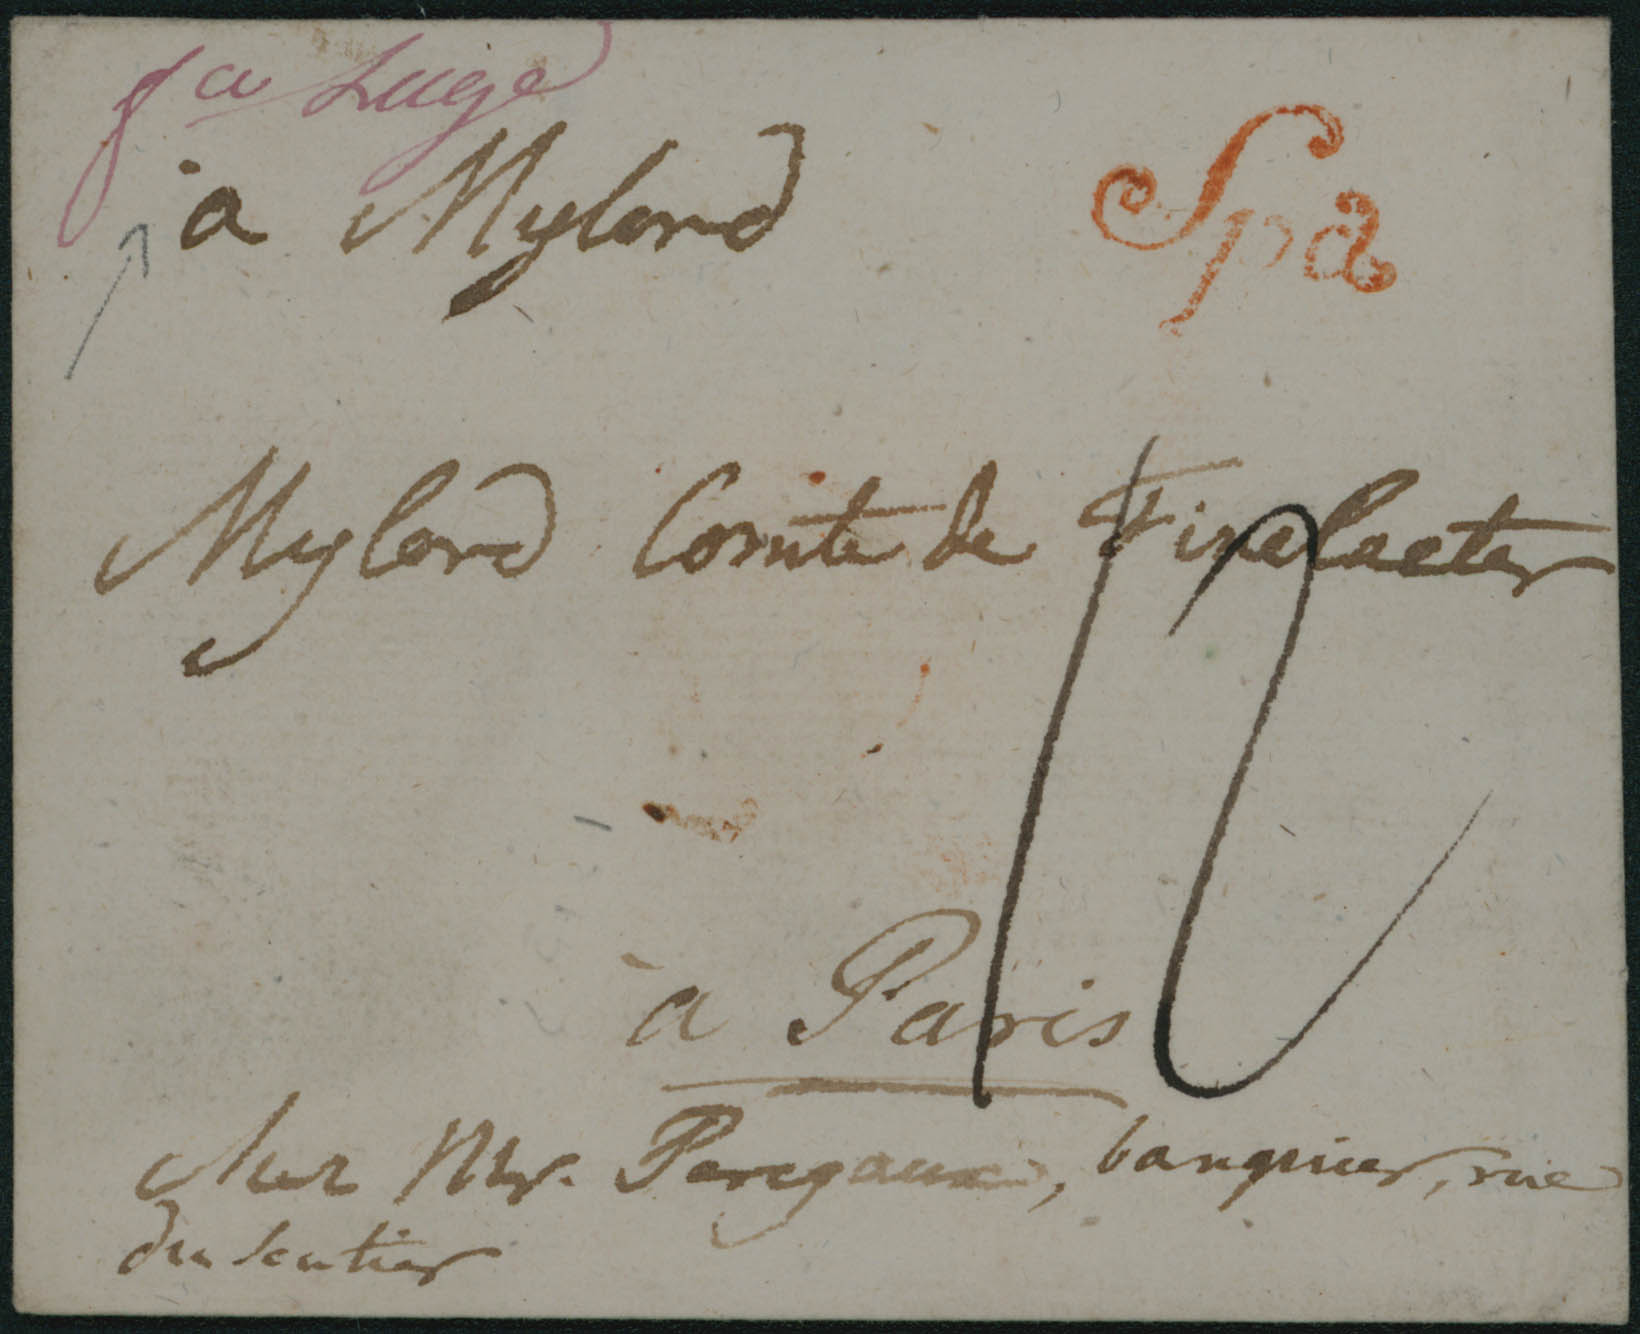 fco Liege
à Mylord
Spa
Mylord Comte de Finelaeter
12
à Paris
chez Mr. Peregaux, banquier, rue
du sentier